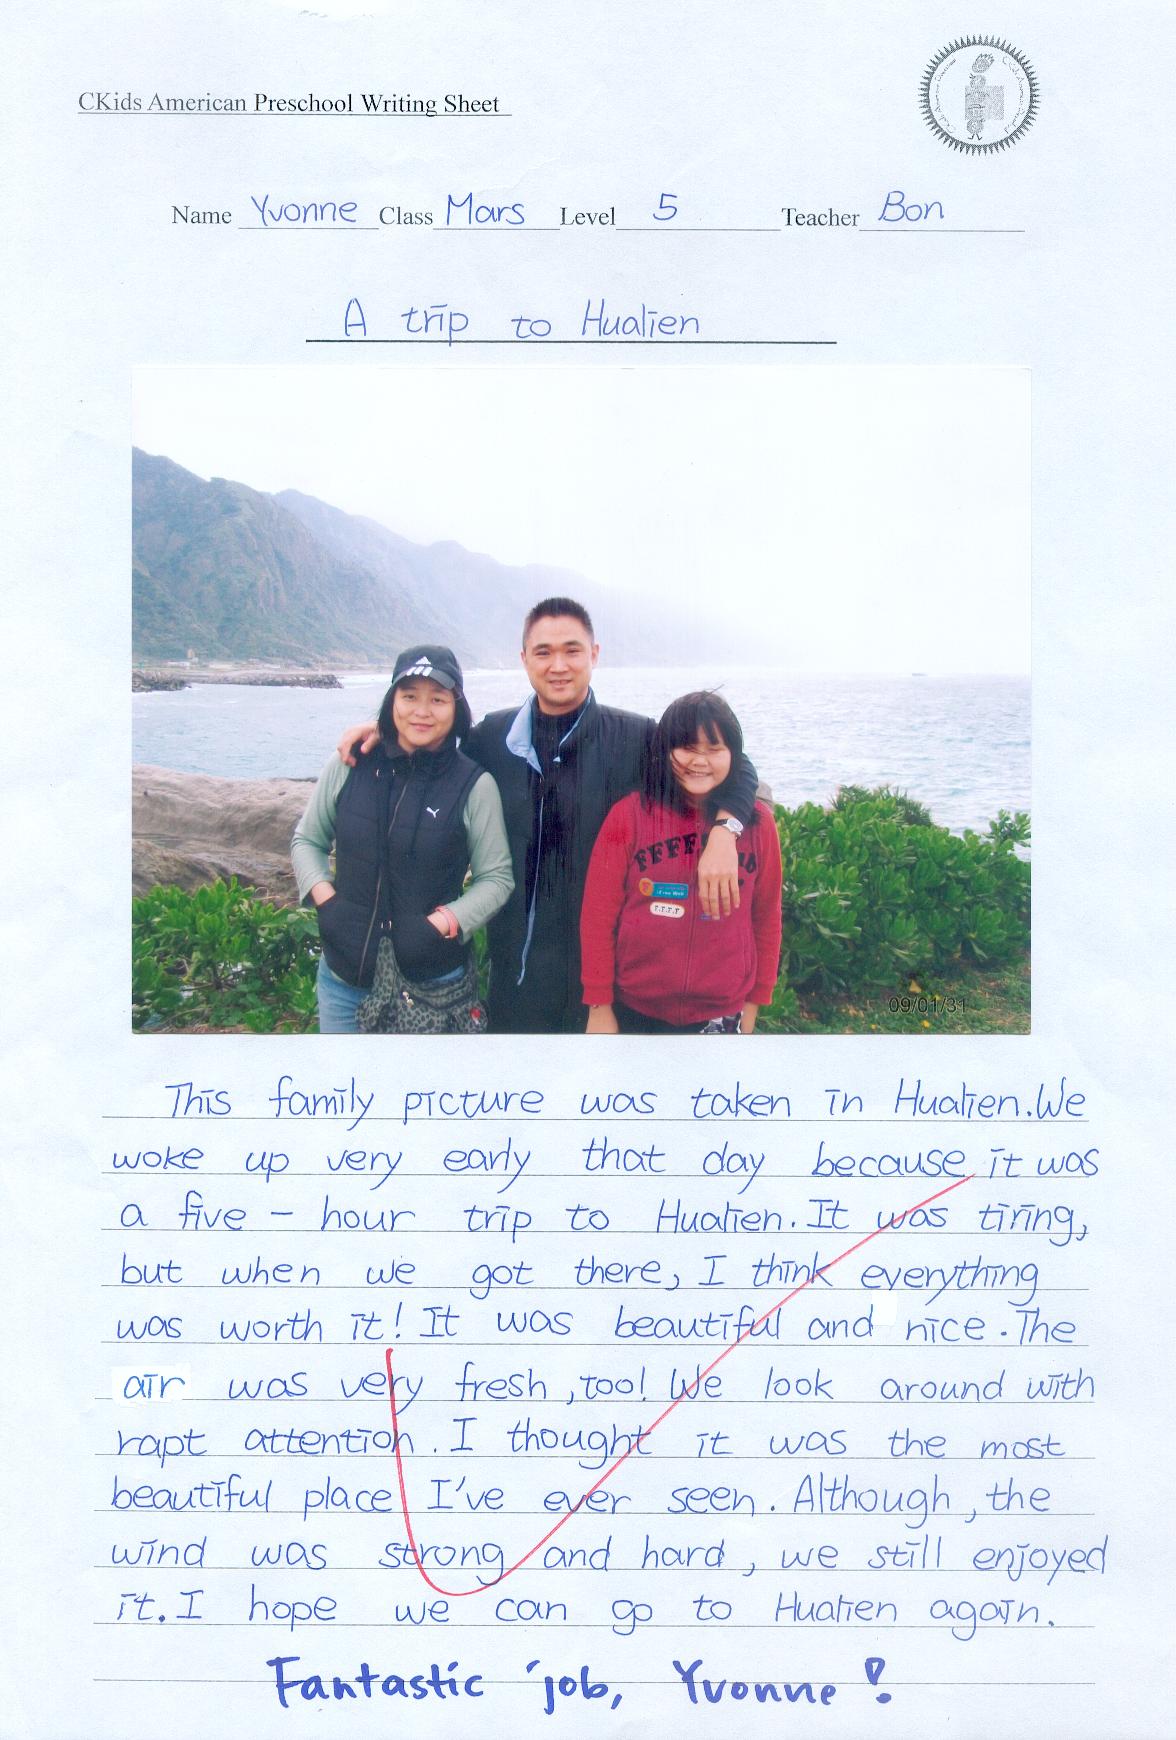 CKids American Preschool Writing Sheet
Name Yvonne Class Mars Level 5 Teacher Bon
A trip to Hualien
09/01/31
This family picture was taken in Hualien. We
woke up very early that day because it was
a five - hour trip to Hualien. It was tiring,
but when we got there, I think everything
was worth it! It was beautiful and nice. The
air was very fresh, too! We look around with
rapt attention. I thought it was the most
beautiful place I've ever seen. Although, the
wind was strong and hard, we still enjoyed
it. I hope we can go to Hualien again.
Fantastic job, Yvonne!